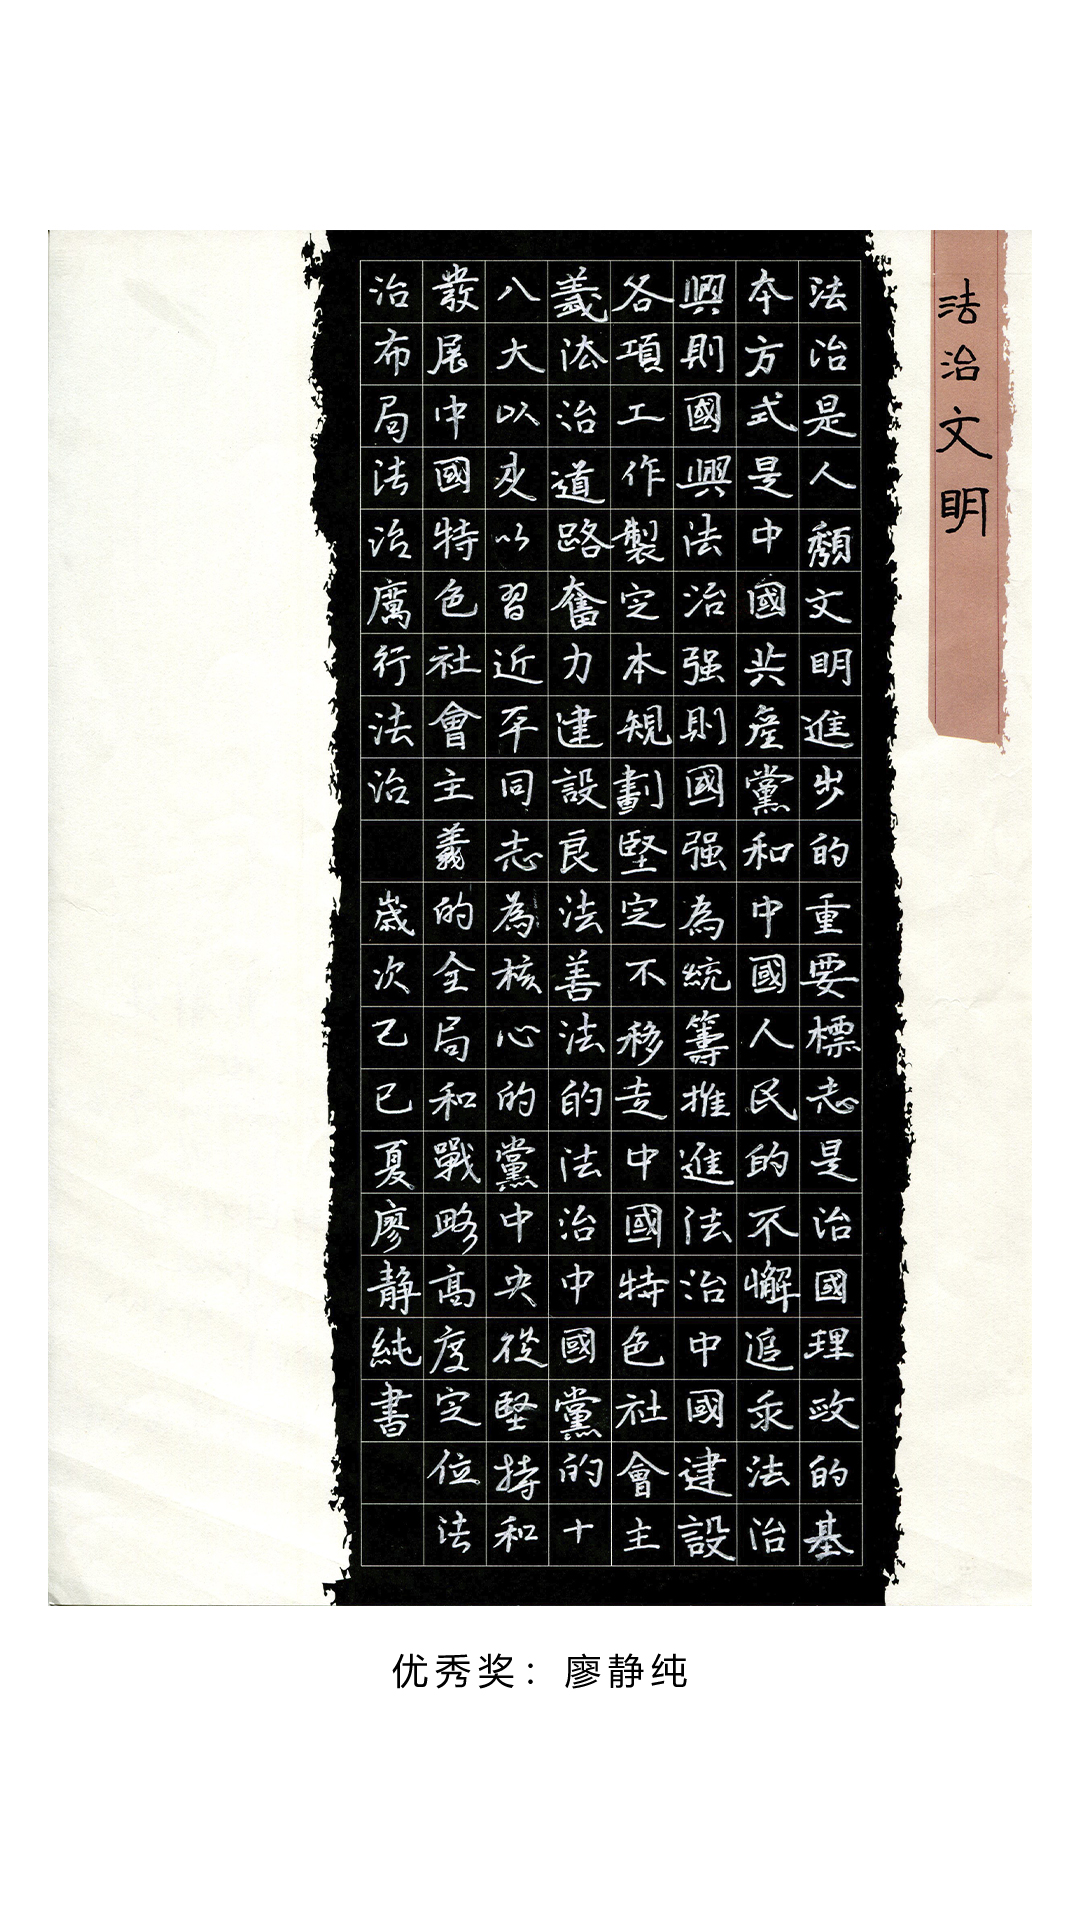 法治文明
法治是人類文明進步的重要標志是治國理政的基
本方式是中國共產黨和中國人民的不懈追求法治
興則國興法治强則國强為統籌推進法治中國建設
各項工作製定本規劃堅定不移走中國特色社會主
義法治道路奮力建設良法善法的法治中國黨的十
八大以來以習近平同志為核心的黨中央從堅持和
發展中國特色社會主義的全局和戰略高度定位法
治布局法治厲行法治 歲次乙巳夏廖静純書
优秀奖：廖静纯